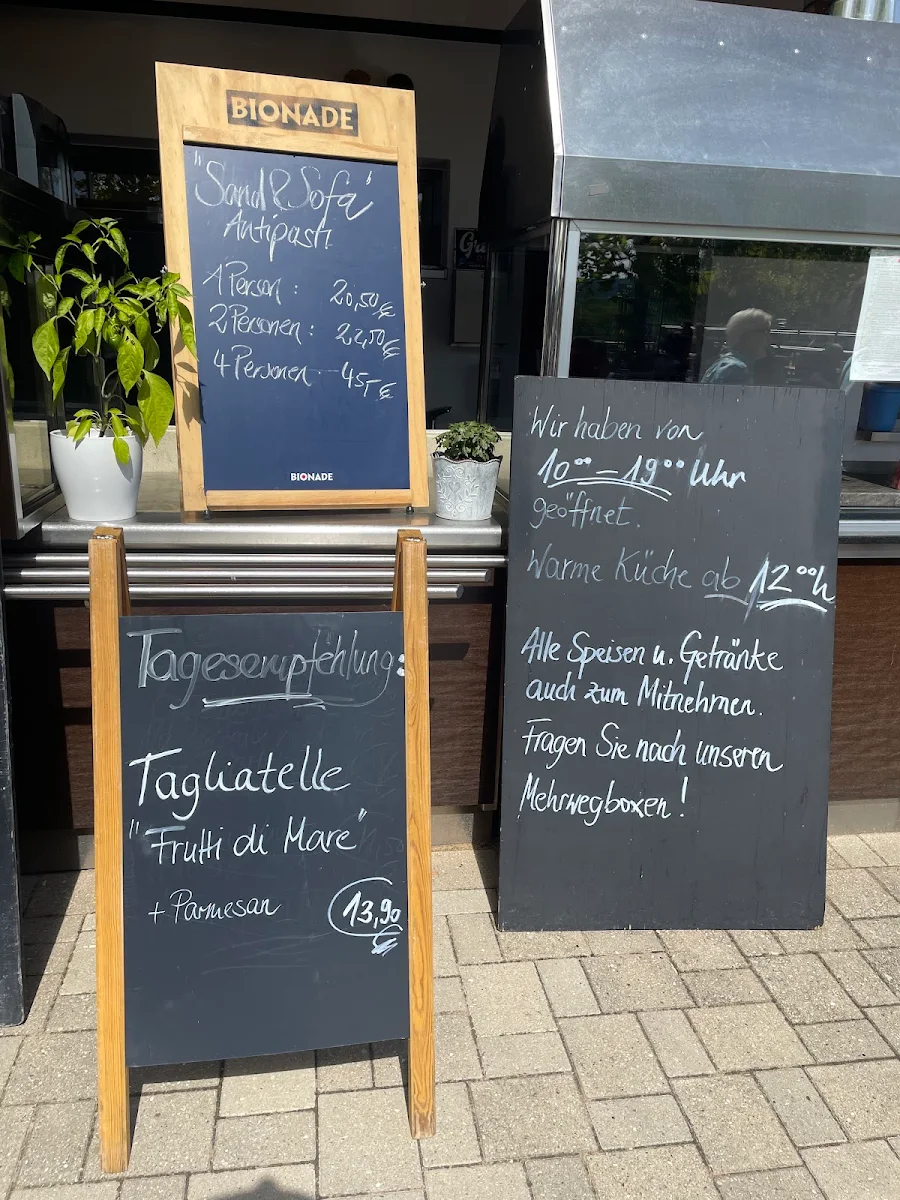 BIONADE
"Sand & Sofa"
Antipasti
1 Person : 20,50 €
2 Personen : 22,50 €
4 Personen 45,- €
BIONADE
Tagesempfehlung:
Tagliatelle
"Frutti di Mare"
+ Parmesan 13,90 €
Wir haben von
10°° – 19°° Uhr
geöffnet.
Warme Küche ab 12°° h
Alle Speisen u. Getränke
auch zum Mitnehmen.
Fragen Sie nach unseren
Mehrwegboxen!